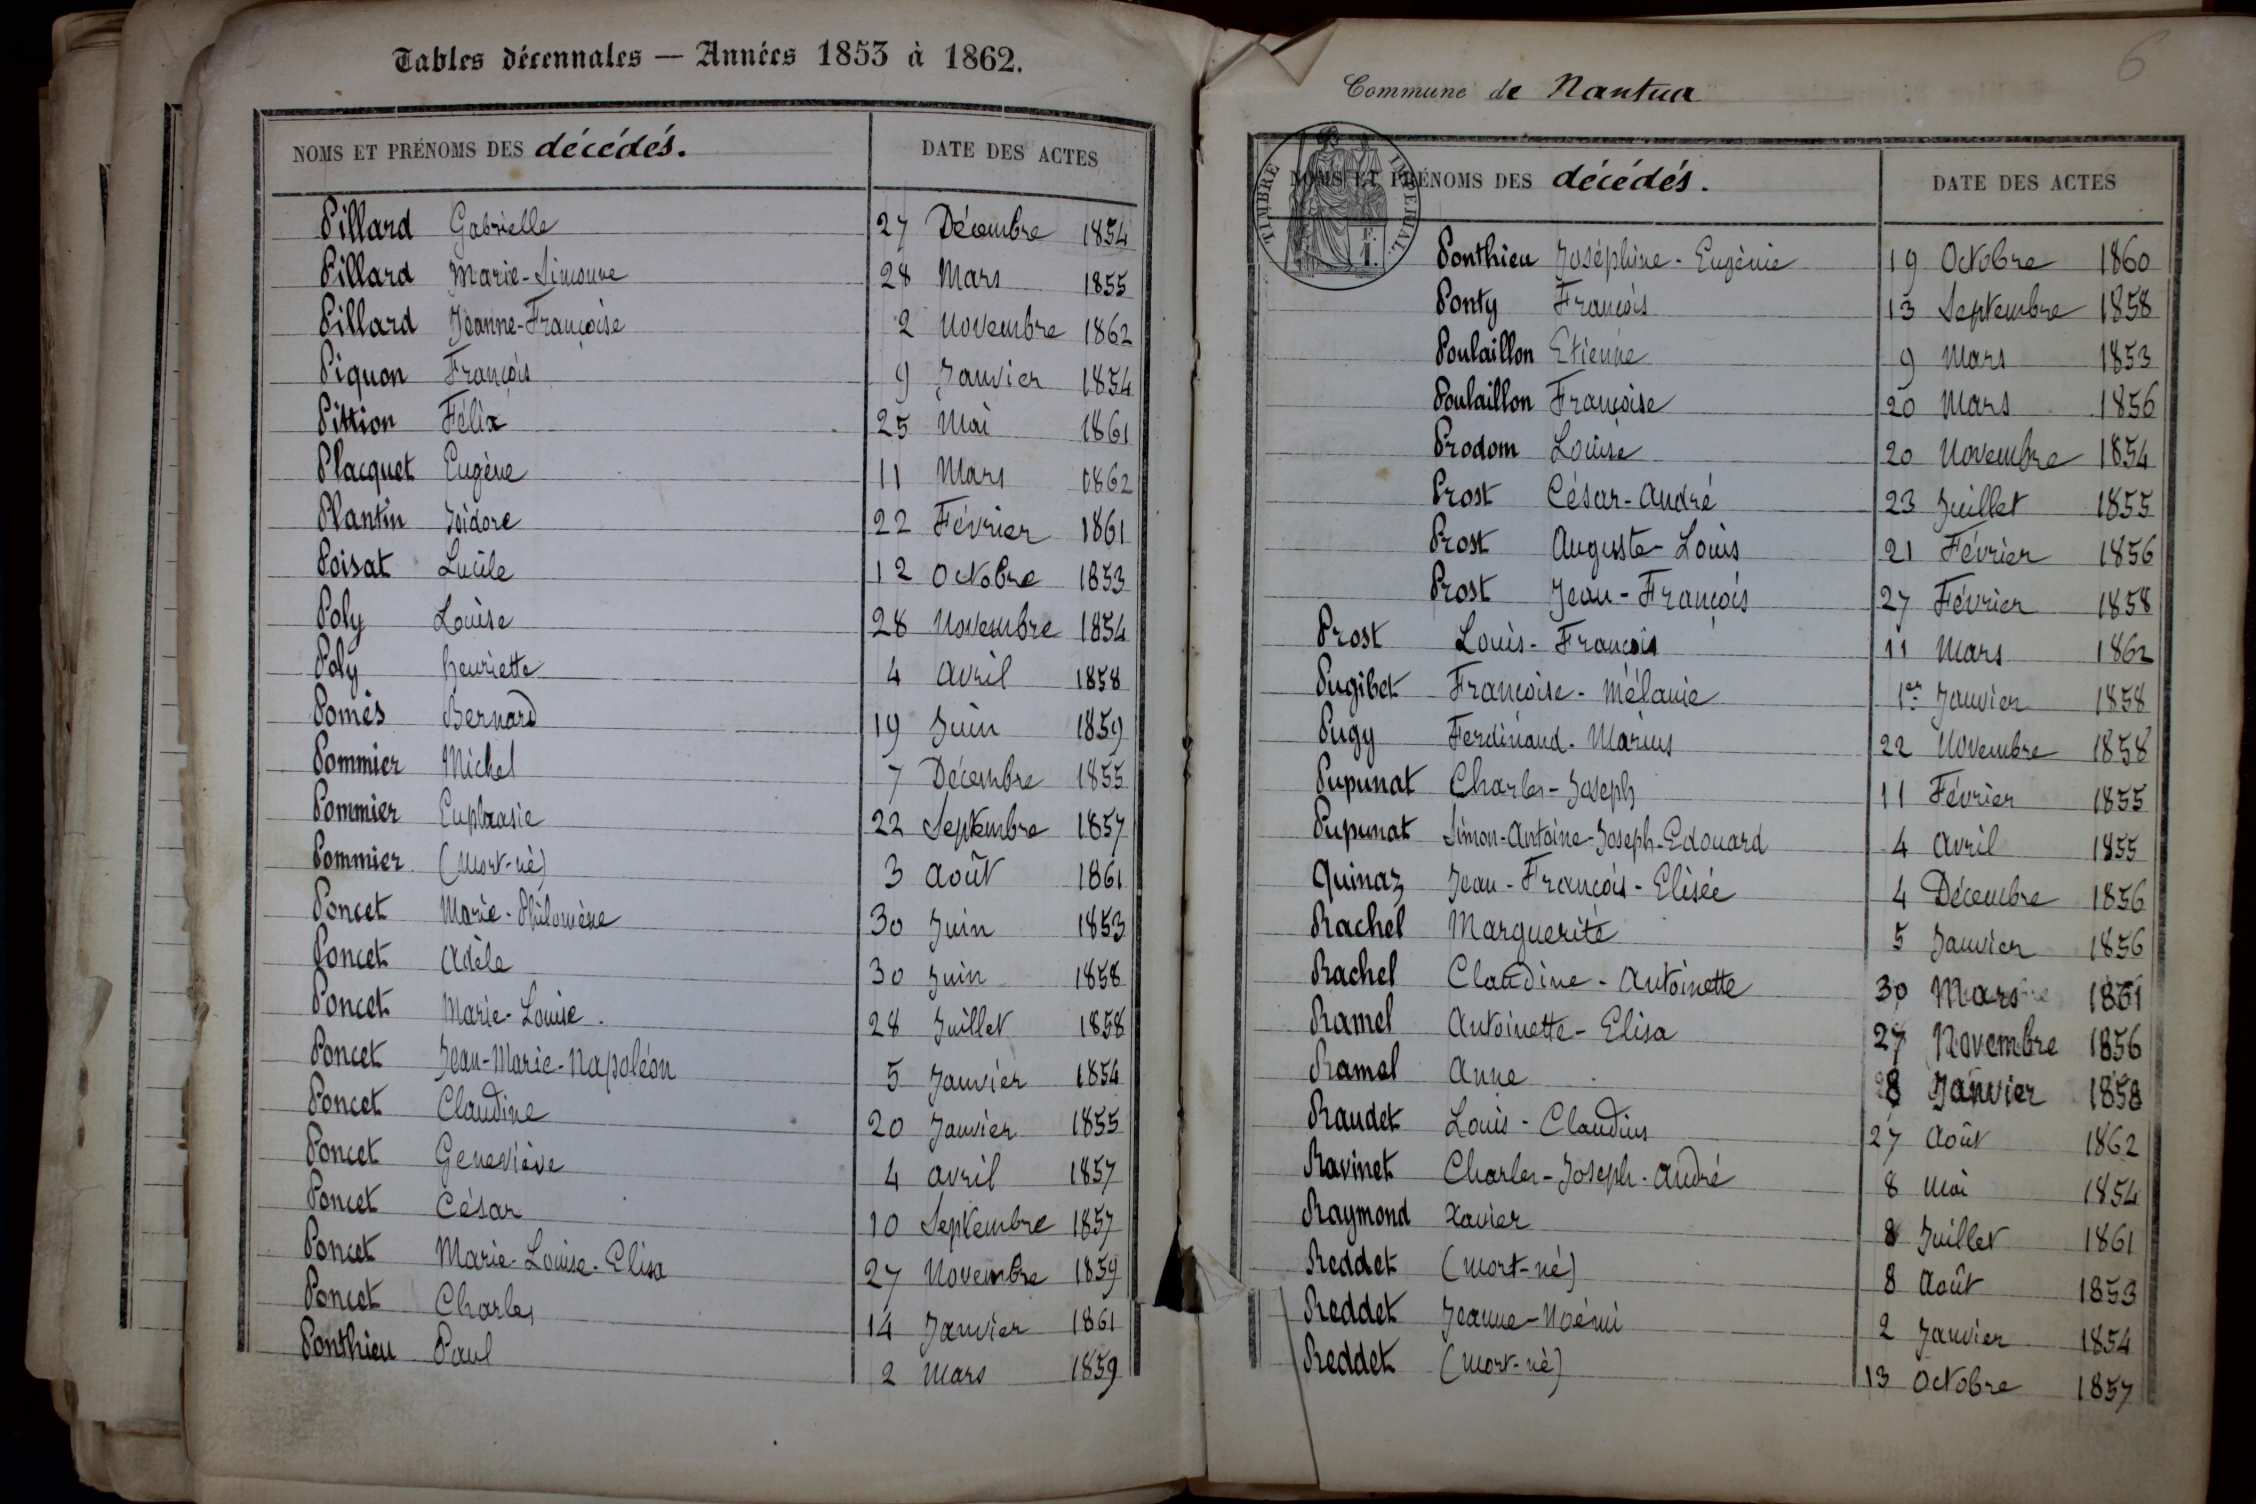 Tables décennales — Années 1853 à 1862.
NOMS ET PRÉNOMS DES décédés. DATE DES ACTES
Pillard Gabrielle 27 Décembre 1854
Pillard Marie-Simonne 28 Mars 1855
Pillard Jeanne-Françoise 2 Novembre 1862
Piquon François 9 Janvier 1854
Pittion Félix 25 Mai 1861
Placquet Eugène 11 Mars 1862
Plantin Isidore 22 Février 1861
Poisat Lucile 12 Octobre 1853
Poly Louise 28 Novembre 1854
Poly henriette 4 Avril 1858
Pomès Bernard 19 Juin 1859
Pommier Michel 7 Décembre 1855
Pommier Euphrasie 22 Septembre 1857
Pommier (Mort-né) 3 Août 1861
Poncet Marie-Philomène 30 Juin 1853
Poncet Adèle 30 Juin 1858
Poncet Marie-Louise. 28 Juillet 1858
Poncet Jean-Marie-Napoléon 5 Janvier 1854
Poncet Claudine 20 Janvier 1855
Poncet Geneviève 4 Avril 1857
Poncet César 10 Septembre 1857
Poncet Marie-Louise-Elisa 27 Novembre 1859
Poncet Charles 14 Janvier 1861
Ponthieu Paul 2 Mars 1859
6
Commune de Nantua
TIMBRE IMPÉRIAL
NOMS ET PRÉNOMS DES décédés. DATE DES ACTES
Ponthieu Joséphine-Eugènie 19 Octobre 1860
Ponty François 13 Septembre 1858
Poulaillon Etienne 9 Mars 1853
Poulaillon Françoise 20 Mars 1856
Prodom Louise 20 Novembre 1854
Prost César-André 23 Juillet 1855
Prost Auguste-Louis 21 Février 1856
Prost Jean-François 27 Février 1858
Prost Louis-François 11 Mars 1862
Pugibet Françoise-Mélanie 1er Janvier 1858
Pugy Ferdinand-Marius 22 Novembre 1858
Pupunat Charles-Joseph 11 Février 1855
Pupunat Simon-Antoine-Joseph-Edouard 4 Avril 1855
Quinaz Jean-François-Elisée 4 Décembre 1856
Rachel Marguerite 5 Janvier 1856
Rachel Claudine-Antoinette 30 Mars 1861
Ramel Antoinette-Elisa 27 Novembre 1856
Ramel Anne 8 Janvier 1858
Raudet Louis-Claudius 27 Août 1862
Ravinet Charles-Joseph-André 8 Mai 1854
Raymond Xavier 8 Juillet 1861
Reddet (Mort-né) 8 Août 1853
Reddet Jeanne-Noémi 2 Janvier 1854
Reddet (Mort-né) 13 Octobre 1857